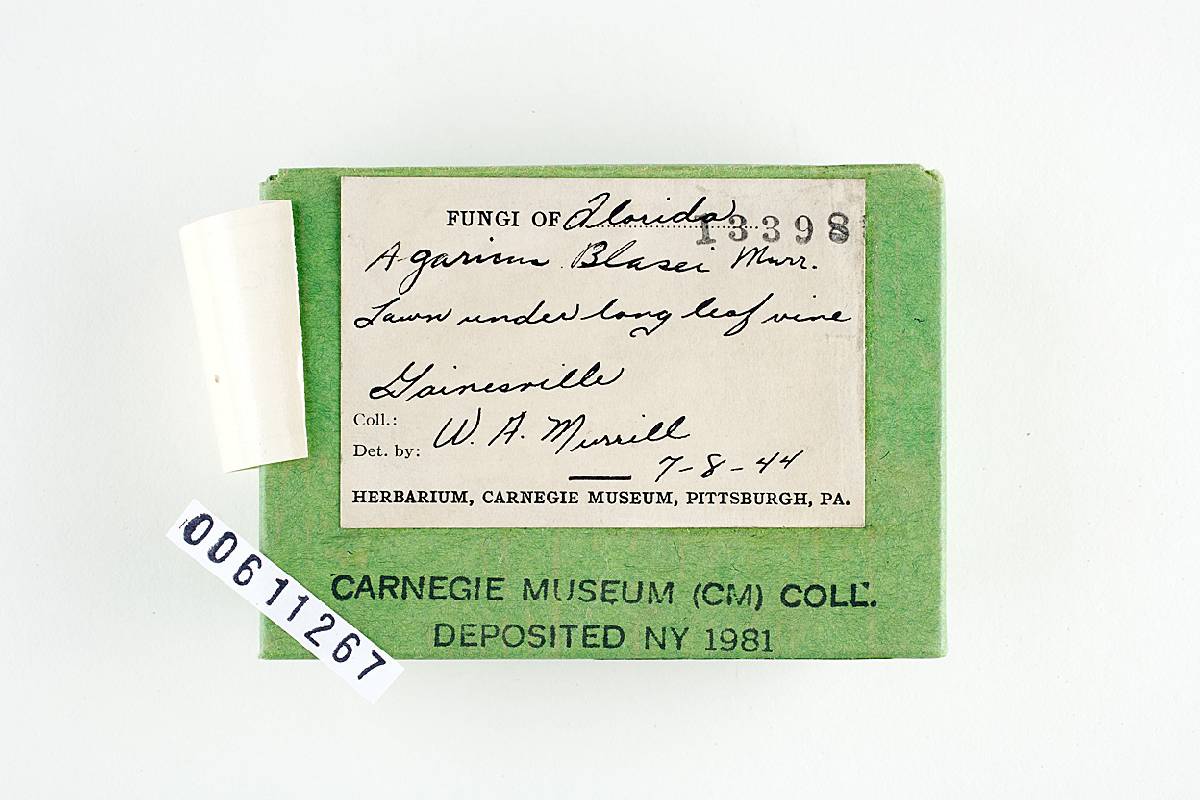 FUNGI OF Florida
133981
Agaricus Blasei Murr.
Lawn under long leaf vine
Gainesville
Coll.:
Det. by: W. A. Murrill
7-8-44
HERBARIUM, CARNEGIE MUSEUM, PITTSBURGH, PA.
CARNEGIE MUSEUM (CM) COLL.
DEPOSITED NY 1981
00611267